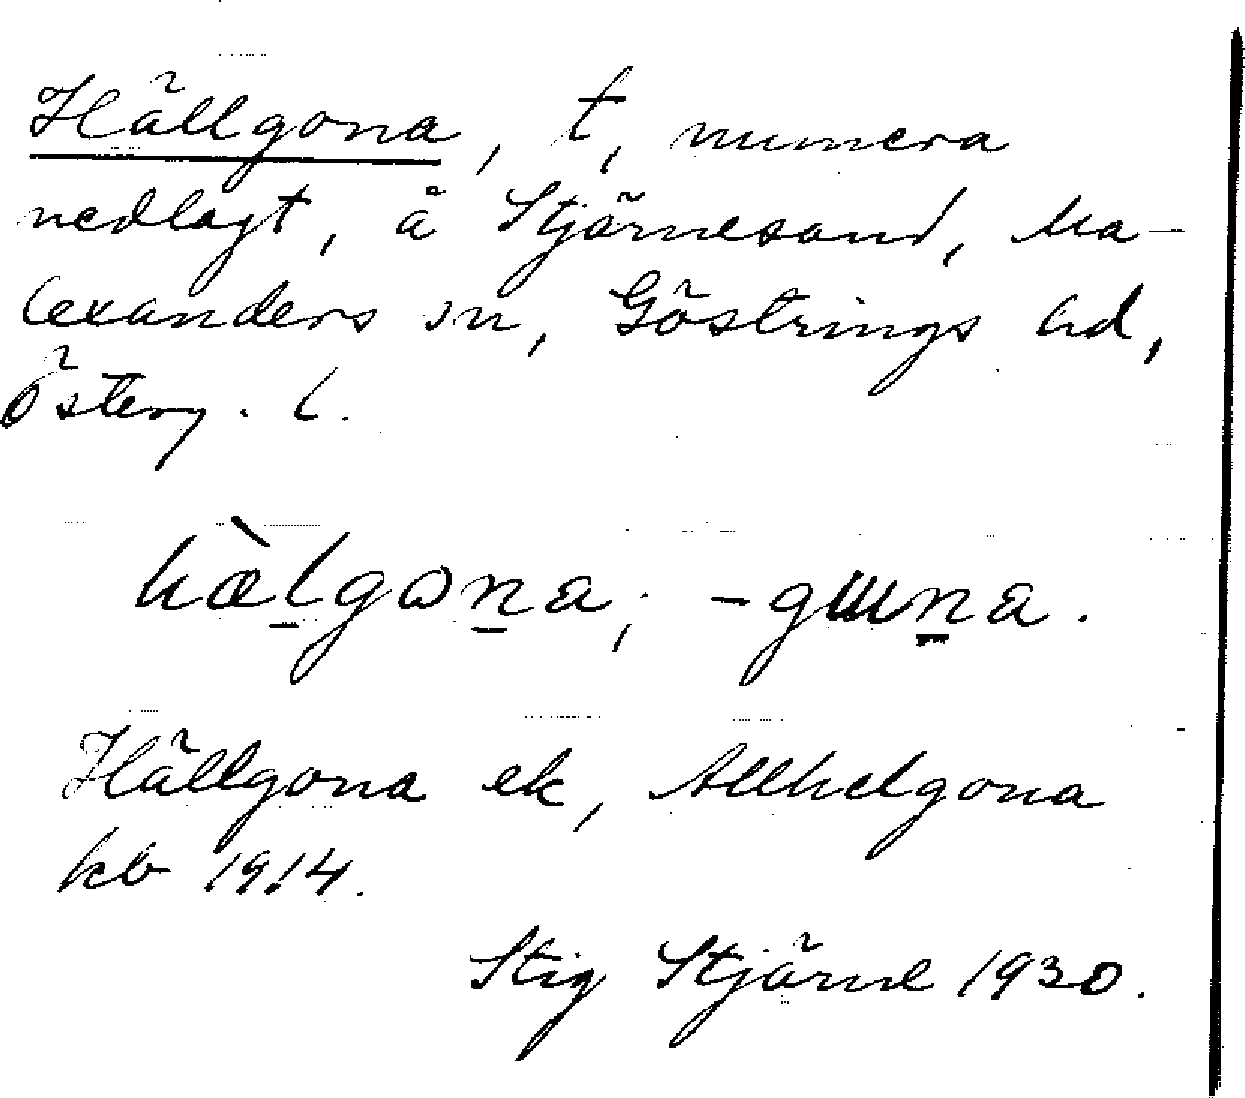 Hällgona, t, numera
nedlagt, å Stjärnesand, Ma-
lexanders sn, Göstrings hd,
Österg. l.
hæ̀lgɷna; -gɯna.
Hällgona ek, Allhelgona
kb 1914.
Stig Stjärne 1930.